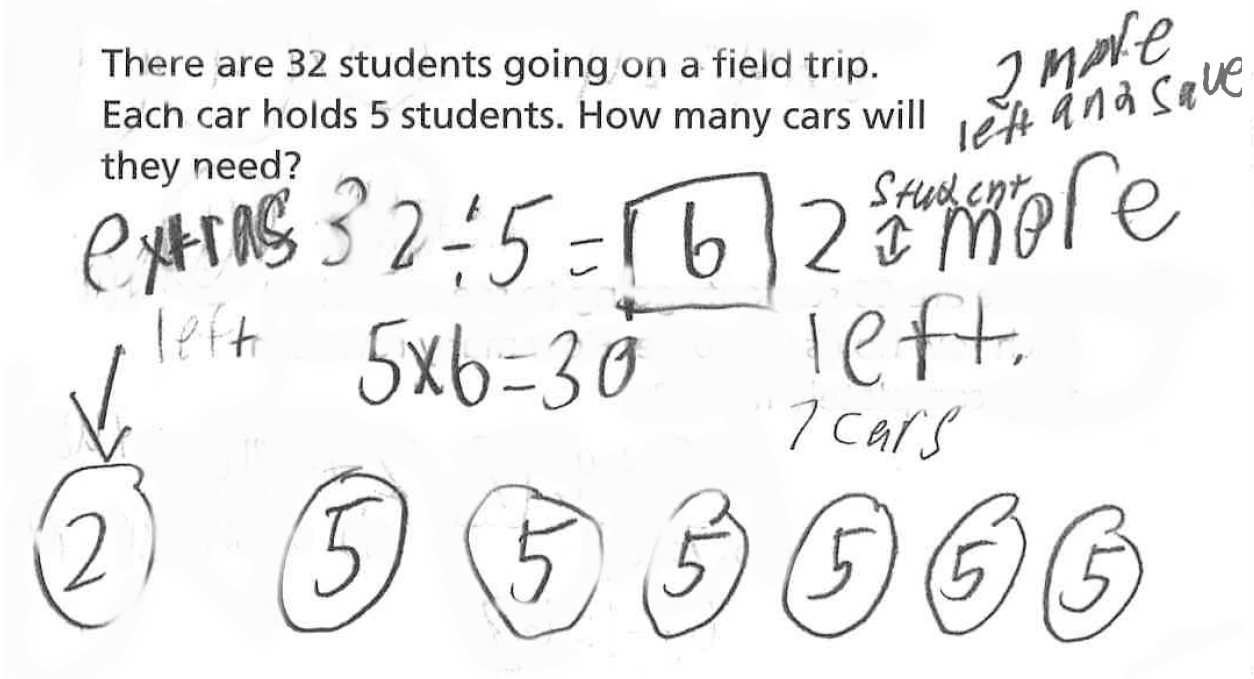 There are 32 students going on a field trip.
Each car holds 5 students. How many cars will
they need?
2 more
left and save
extras 32÷5 = 6 2 student more
left
left.
5x6=30
7 cars
2 5 5 5 5 5 5